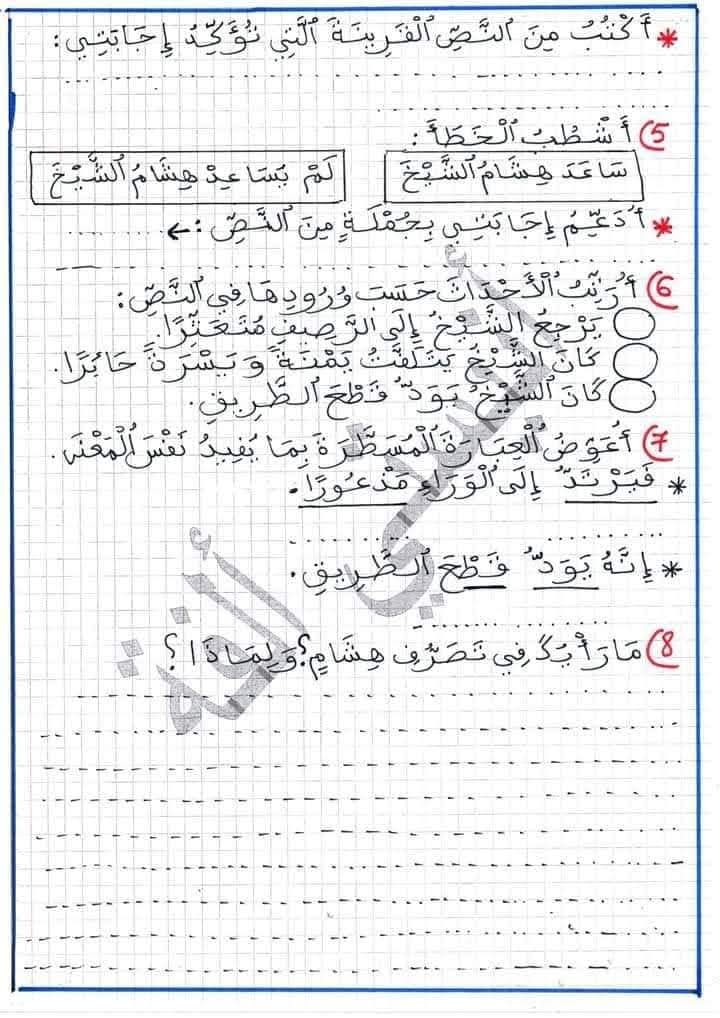 * أَكْتُبُ مِنَ النَّصِّ الْقَرِينَةَ الَّتِي تُؤَكِّدُ إِجَابَتِي :
5) أَشْطُبُ الْخَطَأَ :
سَاعَدَ هِشَامُ الشَّيْخَ
لَمْ يُسَاعِدْ هِشَامُ الشَّيْخَ
* أُدَعِّمُ إِجَابَتِي بِجُمْلَةٍ مِنَ النَّصِّ : ←
6) أُرَتِّبُ الْأَحْدَاثَ حَسَبَ وُرُودِهَا فِي النَّصِّ :
يَرْجِعُ الشَّيْخُ إِلَى الرَّصِيفِ مُتَعَثِّرًا.
كَانَ الشَّيْخُ يَتَلَفَّتُ يَمْنَةً وَ يَسْرَةً حَائِرًا.
كَانَ الشَّيْخُ يَوَدُّ قَطْعَ الطَّرِيقِ.
7) أُعَوِّضُ الْعِبَارَةَ الْمُسَطَّرَةَ بِمَا يُفِيدُ نَفْسَ الْمَعْنَى.
* فَيَرْتَدُّ إِلَى الْوَرَاءِ مَذْعُورًا.
* إِنَّهُ يَوَدُّ قَطْعَ الطَّرِيقِ.
8) مَا رَأْيُكَ فِي تَصَرُّفِ هِشَامٍ؟ وَلِمَاذَا؟
أنيستي ألفة